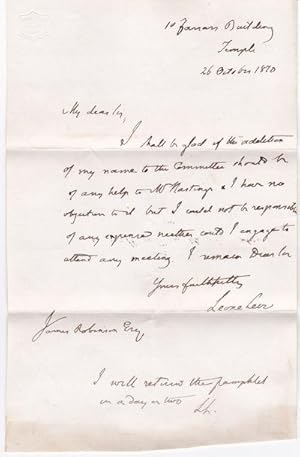 Farrars Building
Temple
26 October 1870
My dear Sir,
I shall be glad if the addition
of my name to the Committee should be
of any help to Mr Hastings & I have no
objection to it but I could not be responsible
of any expense neither could I engage to
attend any meeting. I remain Dear Sir
Yours faithfully
Leone Levi
James Robinson Esq
I will return the pamphlet
in a day or two
LL.